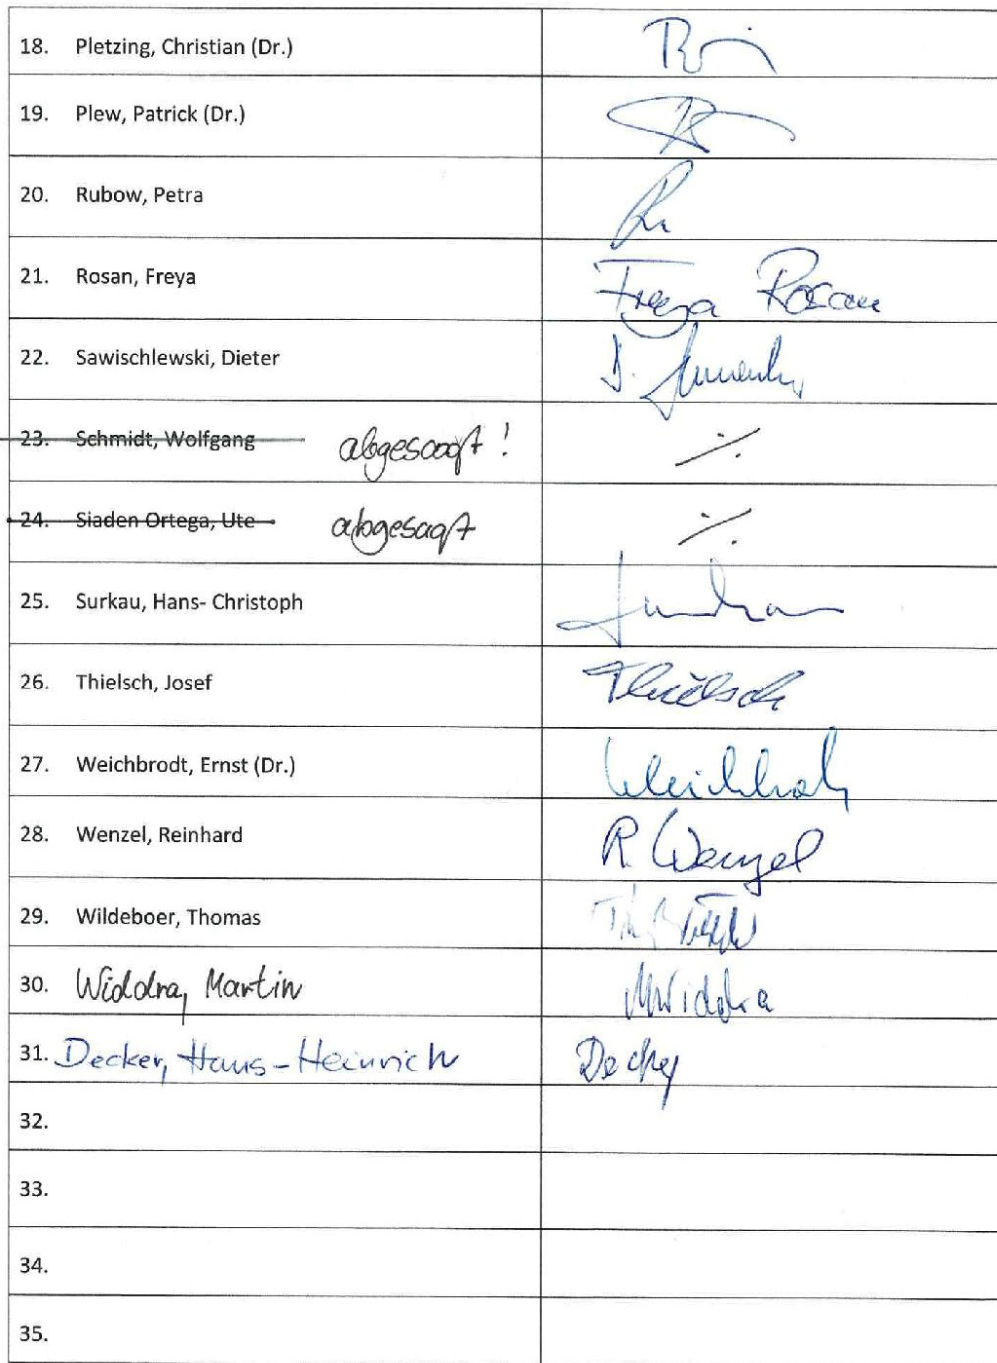 18. Pletzing, Christian (Dr.)
19. Plew, Patrick (Dr.)
20. Rubow, Petra
21. Rosan, Freya Freya Rosan
22. Sawischlewski, Dieter D.
23. Schmidt, Wolfgang abgesagt! ./.
24. Siaden Ortega, Ute abgesagt ./.
25. Surkau, Hans- Christoph
26. Thielsch, Josef Thielsch
27. Weichbrodt, Ernst (Dr.) Weichbrodt
28. Wenzel, Reinhard R. Wenzel
29. Wildeboer, Thomas
30. Widdra, Martin MWiddra
31. Decker, Hans-Heinrich Decker
32.
33.
34.
35.